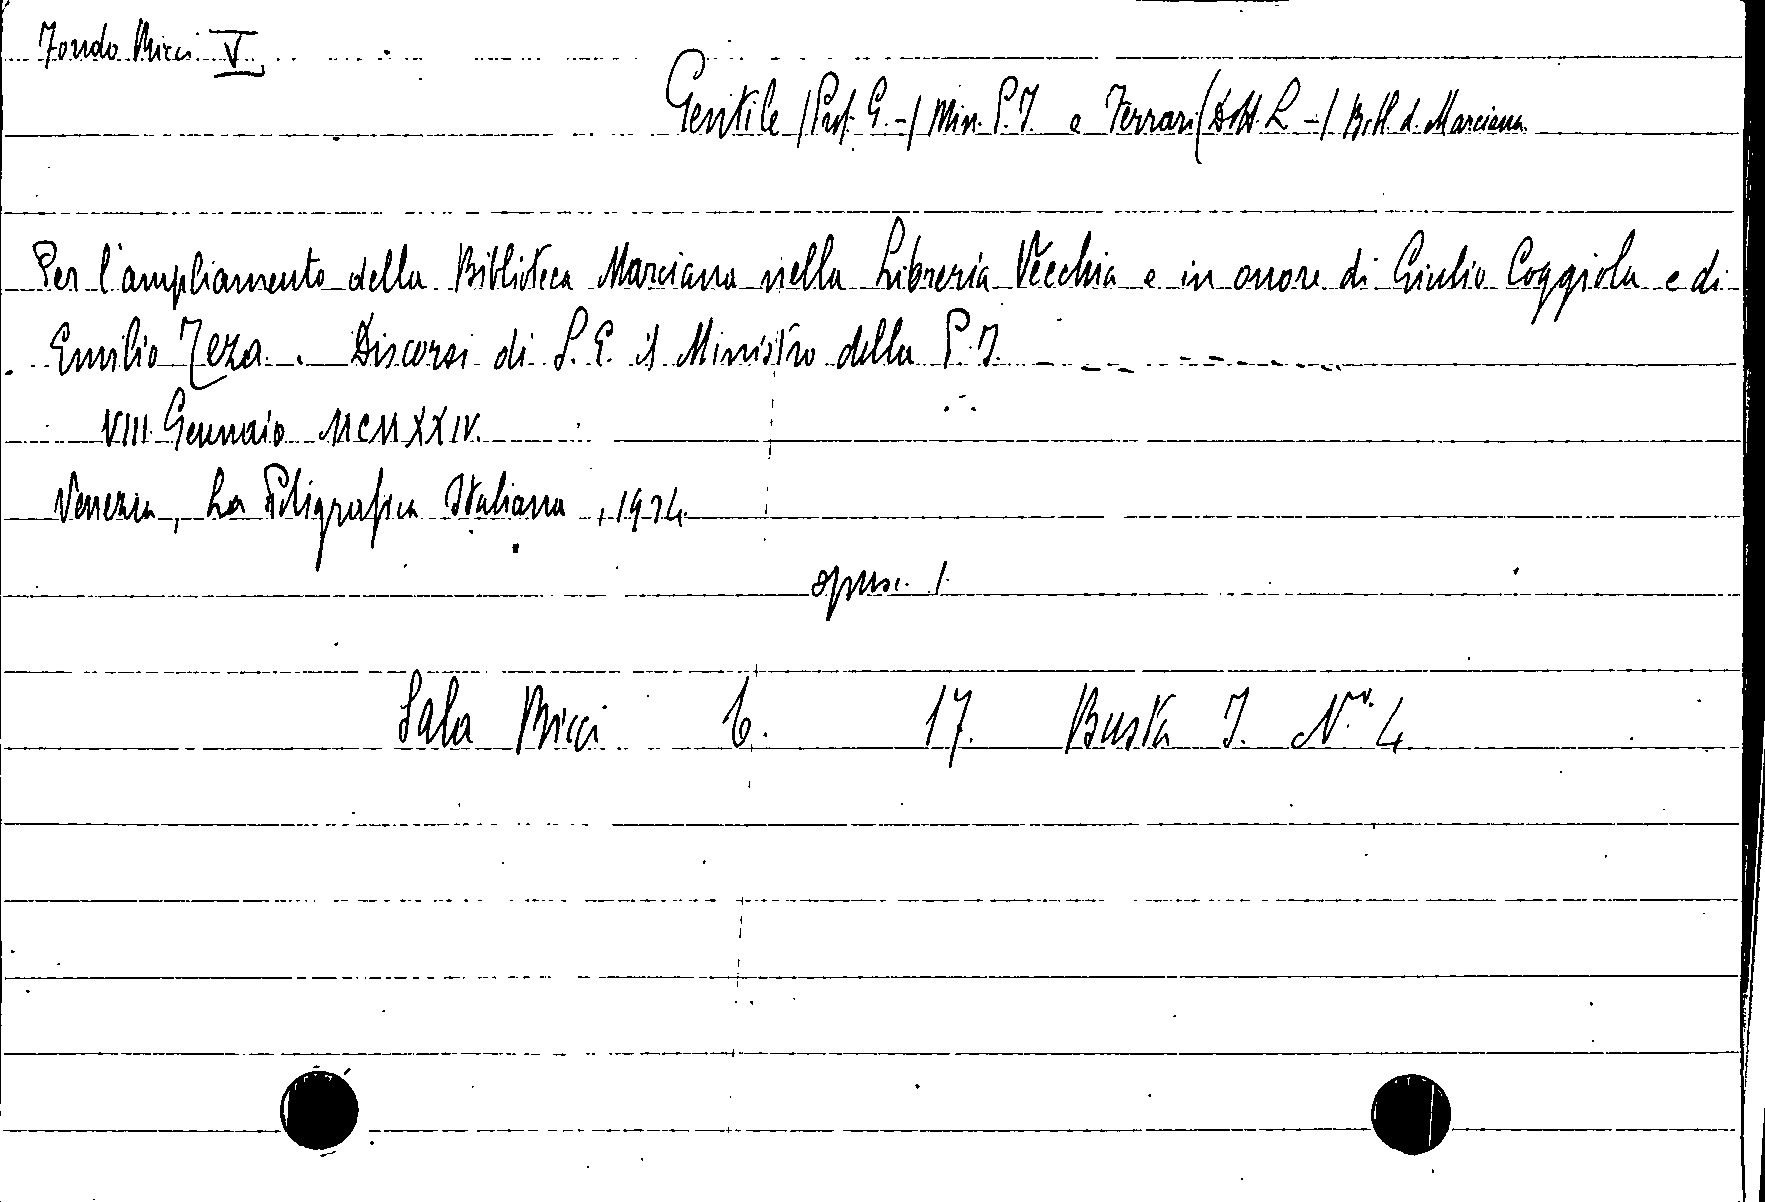 Fondo Ricci V
Gentile (Prof. G.-) Min. P.I. e Ferrari (Dott. L-) Bibl. d. Marciana
Per l'ampliamento della Biblioteca Marciana nella Libreria Vecchia e in onore di Giulio Coggiola e di
Emilio Teza. Discorsi di S. E. il Ministro della P.I.
VIII Gennaio MCMXXIV.
Venezia, La Poligrafica Italiana, 1924
opusc. 1.
Sala Ricci 6. 17. Busta I. N.° 4